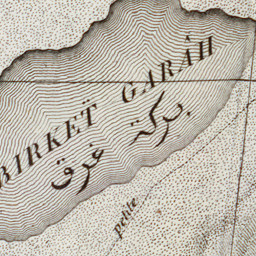 BIRKEṬ GARAH
بركة غرق
petite